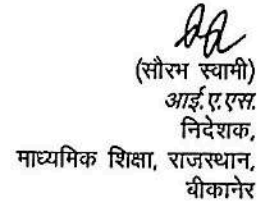 (सौरभ स्वामी)
आई.ए.एस.
निदेशक,
माध्यमिक शिक्षा, राजस्थान,
बीकानेर